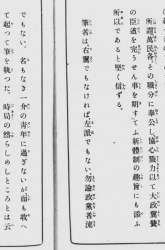 所謂萬民各〻その職分に奉公し協心戮力以て大政翼賛
の臣道を完うせん事を期すてふ新體制の趣旨にも添ふ
所以であると堅く信ずる。
筆者は右黨でもなければ左派でもない。勿論政黨者流
でもない、名もなき一介の青年に過ぎないが而も敢へ
て起つて筆を執つた。時局の然らしめしところとは云